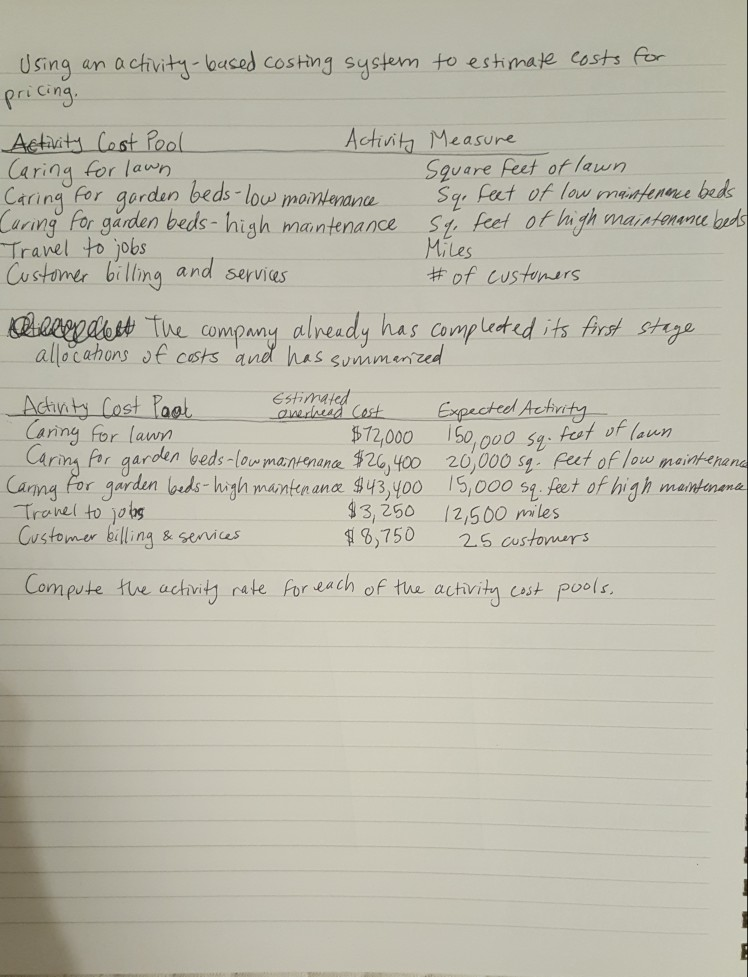 Using an activity-based costing system to estimate costs for
pricing.
Activity Cost Pool Activity Measure
Caring for lawn Square feet of lawn
Caring for garden beds-low maintenance Sq. feet of low maintenence beds
Caring for garden beds-high maintenance Sq. feet of high maintenance beds
Travel to jobs Miles
Customer billing and services # of customers
The company already has completed its first stage
allocations of costs and has summarized
Activity Cost Pool Estimated overhead Cost Expected Activity
Caring for lawn $72,000 150,000 sq. feet of lawn
Caring for garden beds-low maintenance $26,400 20,000 sq. feet of low maintenance
Caring for garden beds-high maintenance $43,400 15,000 sq. feet of high maintenance
Travel to jobs $3,250 12,500 miles
Customer billing & services $8,750 25 customers
Compute the activity rate for each of the activity cost pools.